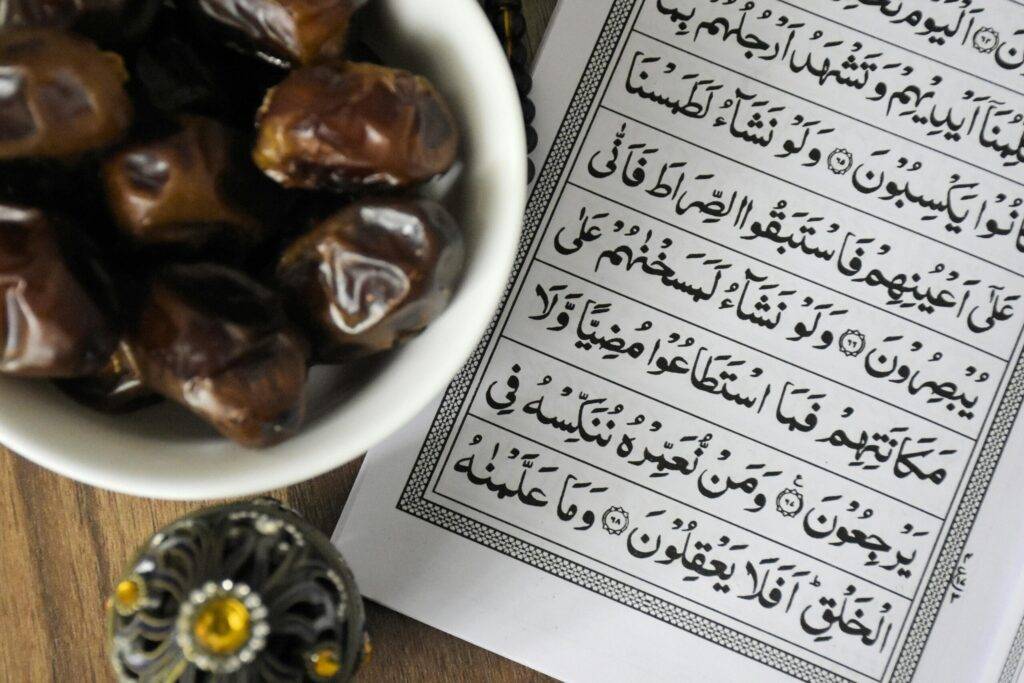 اَلْيَوْمَ
اَيْدِيْهِمْ وَتَشْهَدُ اَرْجُلُهُمْ بِمَا
انُوْا يَكْسِبُوْنَ ﴿۶۵﴾ وَلَوْ نَشَآءُ لَطَمَسْنَا
عَلٰٓى اَعْيُنِهِمْ فَاسْتَبَقُوا الصِّرَاطَ فَاَنّٰى
يُبْصِرُوْنَ ﴿۶۶﴾ وَلَوْ نَشَآءُ لَمَسَخْنٰهُمْ عَلٰى
مَكَانَتِهِمْ فَمَا اسْتَطَاعُوْا مُضِيًّا وَّلَا
يَرْجِعُوْنَ ﴿۶۷﴾ وَمَنْ نُّعَمِّرْهُ نُنَكِّسْهُ فِى
الْخَلْقِ ؕ اَفَلَا يَعْقِلُوْنَ ﴿۶۸﴾ وَمَا عَلَّمْنٰهُ